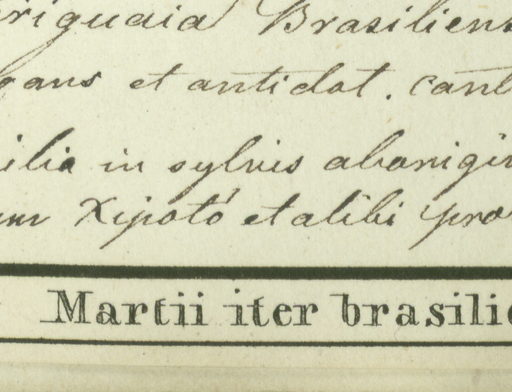 riguaia Brasiliens
gans et antidot. cant
ilia in sylvis aborigin
um Xipotó et alibi pro
Martii iter brasilie